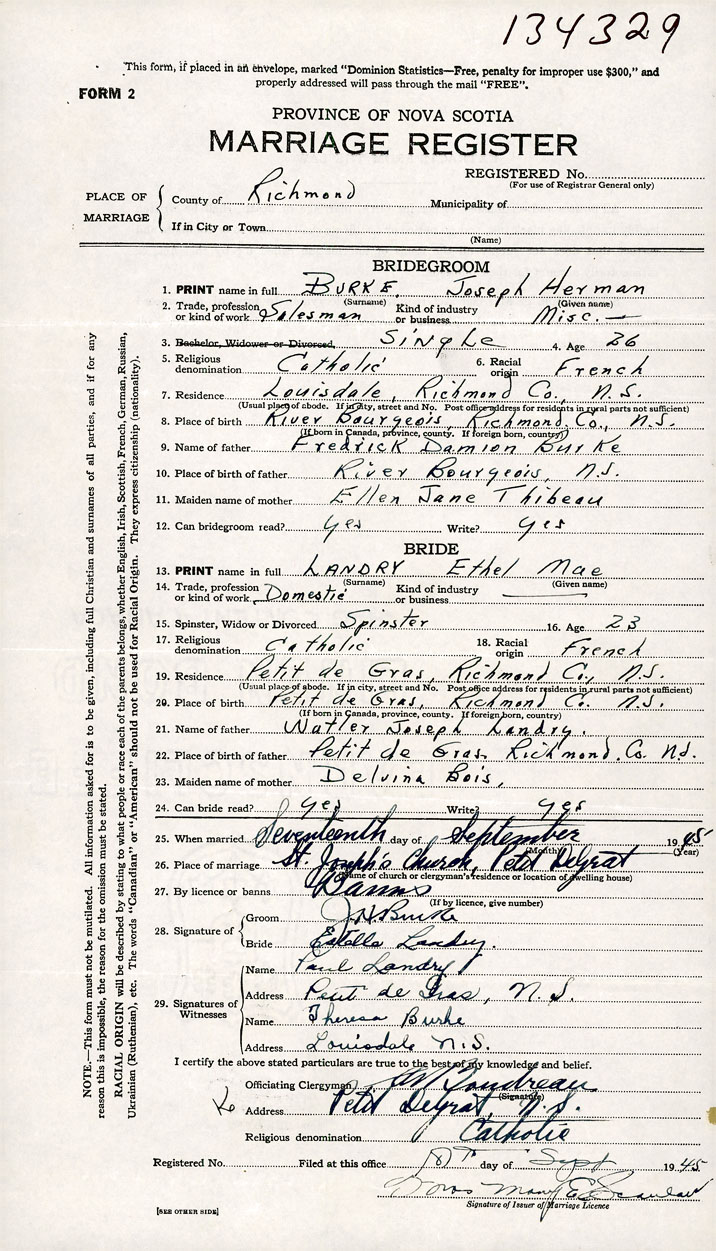 134329
This form, if placed in an envelope, marked "Dominion Statistics—Free, penalty for improper use $300," and
properly addressed will pass through the mail "FREE".
FORM 2
PROVINCE OF NOVA SCOTIA
MARRIAGE REGISTER
REGISTERED No.
(For use of Registrar General only)
PLACE OF MARRIAGE
County of Richmond Municipality of
If in City or Town
(Name)
BRIDEGROOM
1. PRINT name in full BURKE, Joseph Herman
(Surname) (Given name)
2. Trade, profession or kind of work Salesman Kind of industry or business Misc.
3. Bachelor, Widower or Divorced, Single 4. Age 26
5. Religious denomination Catholic 6. Racial origin French
7. Residence Louisdale, Richmond Co., N.S.
(Usual place of abode. If in city, street and No. Post office address for residents in rural parts not sufficient)
8. Place of birth River Bourgeois, Richmond Co., N.S.
(If born in Canada, province, county. If foreign born, country)
9. Name of father Fredrick Damion Burke
10. Place of birth of father River Bourgeois, N.S.
11. Maiden name of mother Ellen Jane Thibeau
12. Can bridegroom read? yes Write? yes
BRIDE
13. PRINT name in full LANDRY Ethel Mae
(Surname) (Given name)
14. Trade, profession or kind of work Domestic Kind of industry or business
15. Spinster, Widow or Divorced Spinster 16. Age 23
17. Religious denomination Catholic 18. Racial origin French
19. Residence Petit de Gras, Richmond Co., N.S.
(Usual place of abode. If in city, street and No. Post office address for residents in rural parts not sufficient)
20. Place of birth Petit de Gras, Richmond Co. N.S.
(If born in Canada, province, county. If foreign born, country)
21. Name of father Watler Joseph Landry.
22. Place of birth of father Petit de Gras, Richmond Co N.S.
23. Maiden name of mother Delvina Bois,
24. Can bride read? yes Write? yes
25. When married Seventeenth day of September 1945
(Month) (Year)
26. Place of marriage St. Joseph's Church, Petit DeGrat
(Name of church or clergyman's residence or location of dwelling house)
27. By licence or banns Banns
(If by licence, give number)
28. Signature of
Groom J.H. Burke
Bride Estella Landry.
29. Signatures of Witnesses
Name Paul Landry
Address Petit de Gras, N.S.
Name Theresa Burke
Address Louisdale N.S.
I certify the above stated particulars are true to the best of my knowledge and belief.
Officiating Clergyman Boudreau
(Signature)
Address Petit DeGrat, N.S.
Religious denomination Catholic
Registered No. Filed at this office day of Sept 1945
Mary E.
Signature of Issuer of Marriage Licence
[SEE OTHER SIDE]
NOTE.—This form must not be mutilated. All information asked for is to be given, including full Christian and surnames of all parties, and if for any
reason this is impossible, the reason for the omission must be stated.
RACIAL ORIGIN will be described by stating to what people or race each of the parents belongs, whether English, Irish, Scottish, French, German, Russian,
Ukrainian (Ruthenian), etc. The words "Canadian" or "American" should not be used for Racial Origin. They express citizenship (nationality).